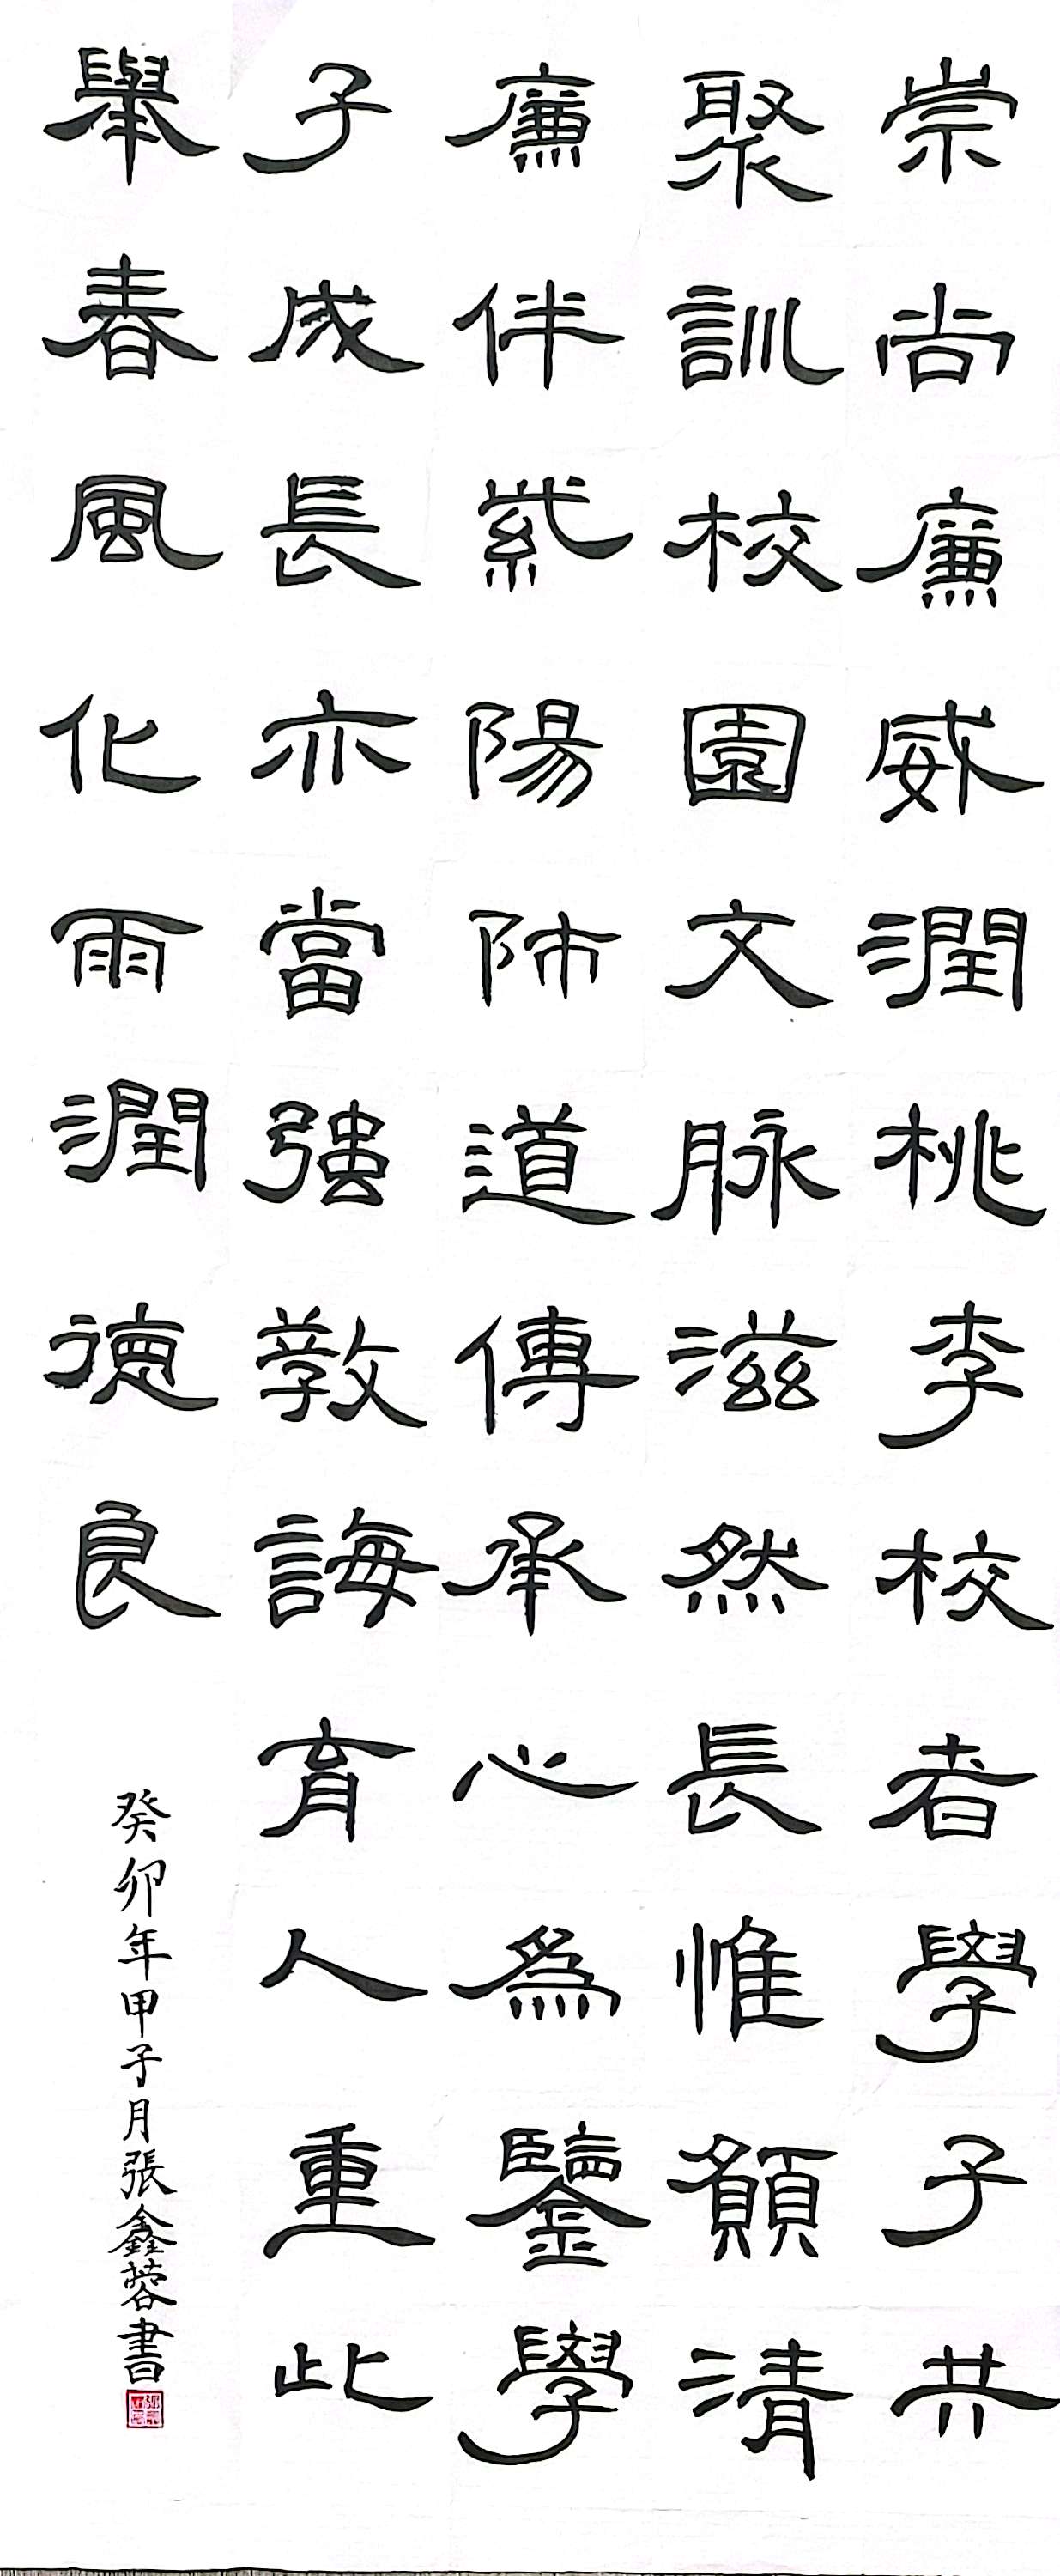 崇尚廉威潤桃李校者學子共
聚訓校園文脉滋然長惟願清
廉伴紫陽師道傳承心為鑒學
子成長亦當強教誨育人重此
舉春風化雨潤德良
癸卯年甲子月張鑫蓉書